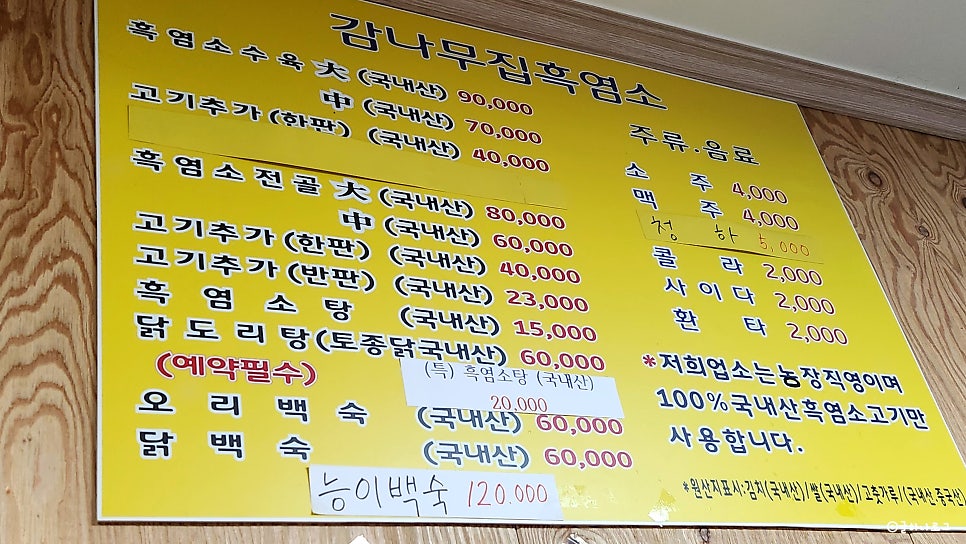 감나무집흑염소
흑염소수육 大 (국내산) 90,000
中 (국내산) 70,000
고기추가 (한판) (국내산) 40,000
흑염소전골 大 (국내산) 80,000
中 (국내산) 60,000
고기추가 (한판) (국내산) 40,000
고기추가 (반판) (국내산) 23,000
흑염소탕 (국내산) 15,000
닭도리탕 (토종닭국내산) 60,000
(예약필수)
(특) 흑염소탕 (국내산)
20,000
오리백숙 (국내산) 60,000
닭백숙 (국내산) 60,000
능이백숙 120.000
주류.음료
소주 4,000
맥주 4,000
청하 5,000
콜라 2,000
사이다 2,000
환타 2,000
*저희업소는농장직영이며
100%국내산흑염소고기만
사용합니다.
*원산지표시:김치(국내산)/쌀(국내산)/고춧가루/(국내산.중국산)